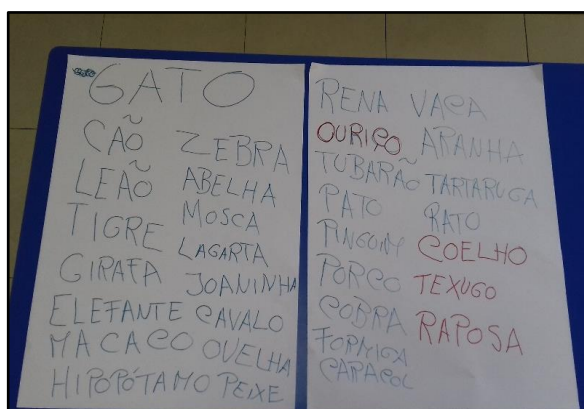 GATO
CÃO ZEBRA
LEÃO ABELHA
TIGRE MOSCA
GIRAFA LAGARTA
ELEFANTE JOANINHA
MACACO CAVALO
HIPOPÓTAMO OVELHA
PEIXE
RENA VACA
OURIÇO ARANHA
TUBARÃO TARTARUGA
PATO RATO
PINGUIM COELHO
PORCO TEXUGO
COBRA RAPOSA
FORMIGA
CARACOL